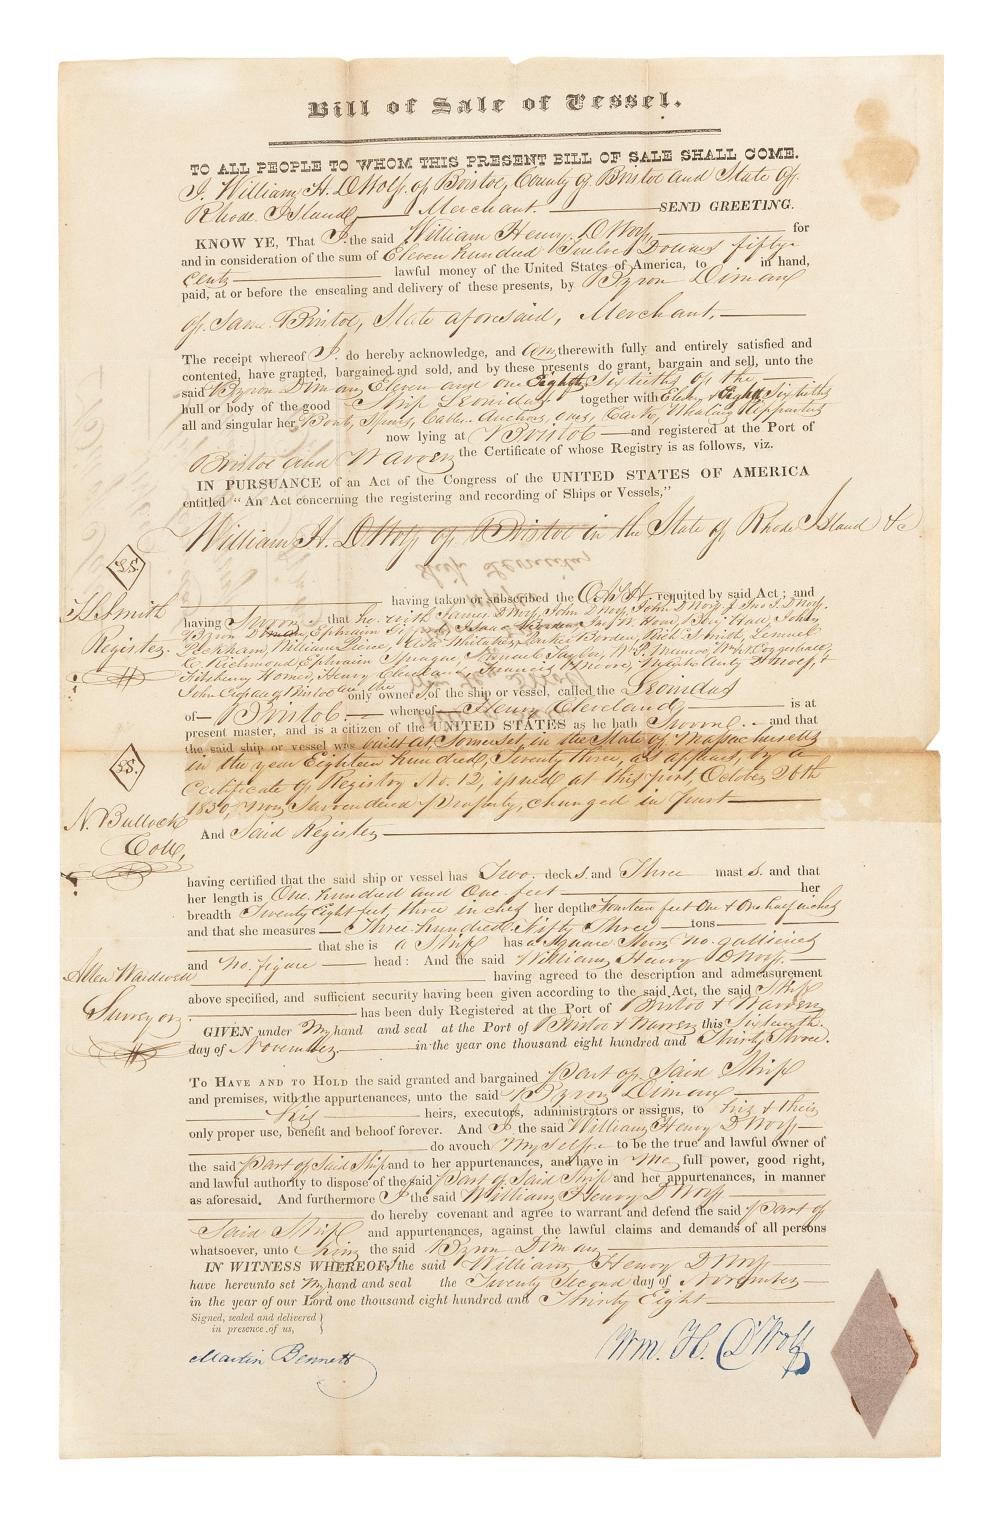 Bill of Sale of Vessel.
TO ALL PEOPLE TO WHOM THIS PRESENT BILL OF SALE SHALL COME.
I. William H. DWolf of Bristol, County of Bristol and State of
Rhode Island, Merchant. SEND GREETING.
KNOW YE, That I the said William Henry DWolf for
and in consideration of the sum of Eleven hundred Twelve Dollars fifty
cents lawful money of the United States of America, to in hand,
paid, at or before the ensealing and delivery of these presents, by Byron Diman
of Same Bristol, State aforesaid, Merchant,
The receipt whereof I. do hereby acknowledge, and am therewith fully and entirely satisfied and
contented, have granted, bargained and sold, and by these presents do grant, bargain and sell, unto the
said Byron Diman Eleven and one Eighth Sixtieths of the
hull or body of the good Ship Leonidas together with Eleven & Eighth Sixtieths
all and singular her Boats, Spars, Cables Anchors, Whaling Apparatus
now lying at Bristol and registered at the Port of
Bristol and Warren the Certificate of whose Registry is as follows, viz.
IN PURSUANCE of an Act of the Congress of the UNITED STATES OF AMERICA
entitled "An Act concerning the registering and recording of Ships or Vessels,"
William H. DWolf of Bristol in the State of Rhode Island &c
L.S.
having taken or subscribed the Oath required by said Act; and
T Smith
having Sworn that he with James DWolf, John DWolf, John DWolf
Byron Diman, Ephraim Isaac Borden Benj Hall, John
Register.
Peckham, William Pierce, Whitaker, Parker Borden, Smith, Lemuel
C. Richmond Ephraim Sprague, Taylor, W. Munroe, Coggeshall
Fitzhenry Homer, Henry Cleveland, Francis Moore, DWolf, &
John of Bristol are the only owners, of the ship or vessel, called the Leonidas
of Bristol. whereof Henry Cleveland is at
present master, and is a citizen of the UNITED STATES as he hath Sworn. and that
the said ship or vessel was built at Somerset, in the State of Massachusetts
L.S.
in the year Eighteen hundred, Twenty three, as appears, by a
Certificate of Registry No. 12, issued at this port, October 26th
1830, now Surrendered Property, changed in part
N. Bullock
And Said Register
Coll,
having certified that the said ship or vessel has Two. decks. and Three masts. and that
her length is One hundred and One feet her
breadth Twenty Eight feet, three inches her depth Fourteen feet One & One half inches
and that she measures Three hundred Fifty Three tons
that she is a Ship has a Square Stern no. galleries
Allen Wardwell
and no. figure head: And the said William Henry DWolf.
having agreed to the description and admeasurement
above specified, and sufficient security having been given according to the said Act, the said Ship
Surveyor
has been duly Registered at the Port of Bristol & Warren
GIVEN under My hand and seal at the Port of Bristol & Warren this Sixteenth
day of November. in the year one thousand eight hundred and Thirty Three.
TO HAVE AND TO HOLD the said granted and bargained Part of Said Ship
and premises, with the appurtenances, unto the said Byron Diman
his heirs, executors, administrators or assigns, to his & their
only proper use, benefit and behoof forever. And I the said William Henry DWolf
do avouch Myself to be the true and lawful owner of
the said Part of Said Ship and to her appurtenances, and have in me full power, good right,
and lawful authority to dispose of the said Part of Said Ship and her appurtenances, in manner
as aforesaid. And furthermore I the said William Henry DWolf
do hereby covenant and agree to warrant and defend the said Part of
Said Ship and appurtenances, against the lawful claims and demands of all persons
whatsoever, unto him the said Byron Diman
IN WITNESS WHEREOF, I the said William Henry DWolf
have hereunto set My hand and seal the Twenty Second day of November
in the year of our Lord one thousand eight hundred and Thirty Eight
Signed, sealed and delivered
in presence of us,
Martin Bennett
Wm. H. D'Wolf